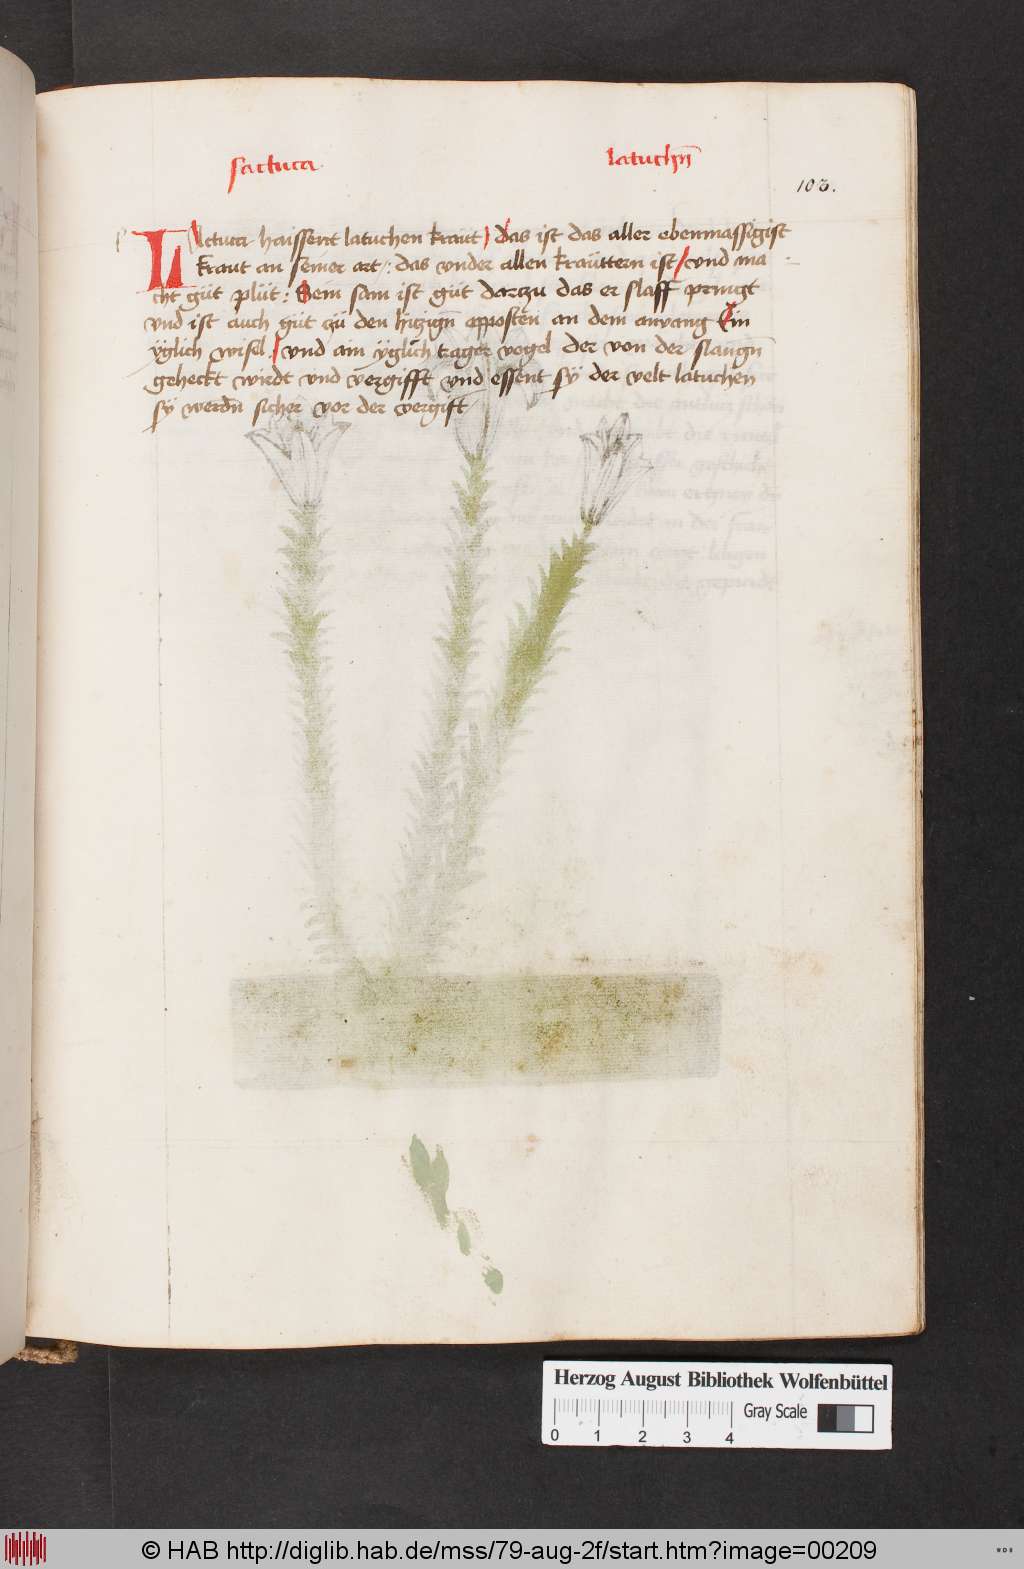 sactuca latuchn̄
103.
Lactuca haissent latuchen kraut) das ist das aller ebenmassigist
kraut an seiner art : das vnder allen kraüttern ist / vnd ma
cht güt plüt : Sein sam ist güt dartzu das er slaff pringt
vnd ist auch güt zü den hitzign̄ apposten an dem anvang Ein
yglich wisel / vnd ain yglich trager vogel der von der slangn̄
geheckt wirdt vnd vergifft vnd essent sÿ der velt latuchen
sÿ werdn̄ sicher vor der vergift
Herzog August Bibliothek Wolfenbüttel
Gray Scale
0 1 2 3 4
© HAB http://diglib.hab.de/mss/79-aug-2f/start.htm?image=00209